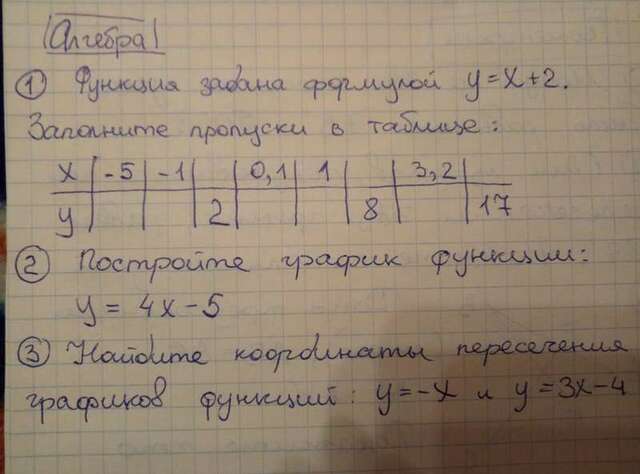 Алгебра
① Функция задана формулой y=x+2.
Заполните пропуски в таблице:
x | -5 | -1 | | 0,1 | 1 | | 3,2 |
y | | | 2 | | | 8 | | 17
② Постройте график функции:
y = 4x-5
③ Найдите координаты пересечения
графиков функций: y=-x и y=3x-4